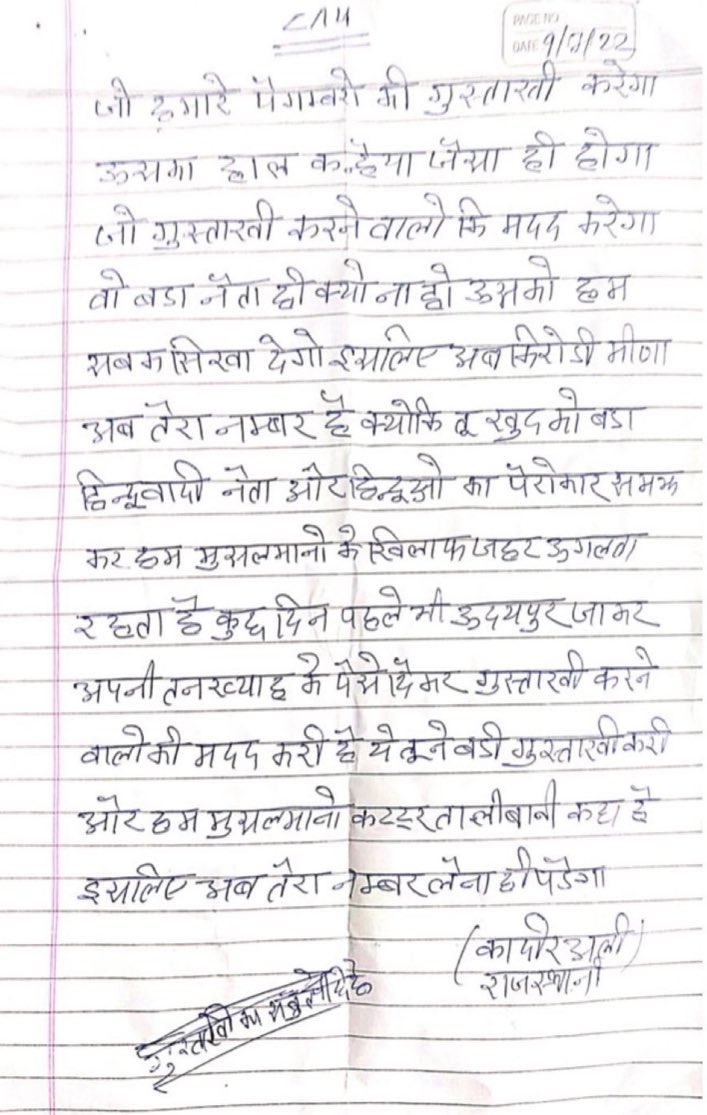 PAGE NO
DATE 9/7/22
जो हमारे पैगम्बरो की गुस्ताखी करेगा
ऊसका हाल कन्हैया जैसा ही होगा
जो गुस्ताखी करने वालो कि मदद करेगा
वो बडा नेता ही क्यो ना हो ऊसको हम
सबक सिखा देगो इसलिए अब किरोडी मीणा
अब तेरा नम्बर है क्योकि तू खुद को बडा
हिन्दूवादी नेता और हिन्दूओ का पैरोकार समझ
कर हम मुसलमानो के खिलाफ जहर ऊगलता
रहता है कुछ दिन पहले भी ऊदयपुर जाकर
अपनी तनख्याह के पैसे देकर गुस्ताखी करने
वालो की मदद करी है ये तूने बडी गुस्ताखी करी
और हम मुसलमानो कटट्र तालीबानी कहा है
इसलिए अब तेरा नम्बर लेना ही पडेगा
(कादीर अली)
राजस्थानी
गुस्ताखी का